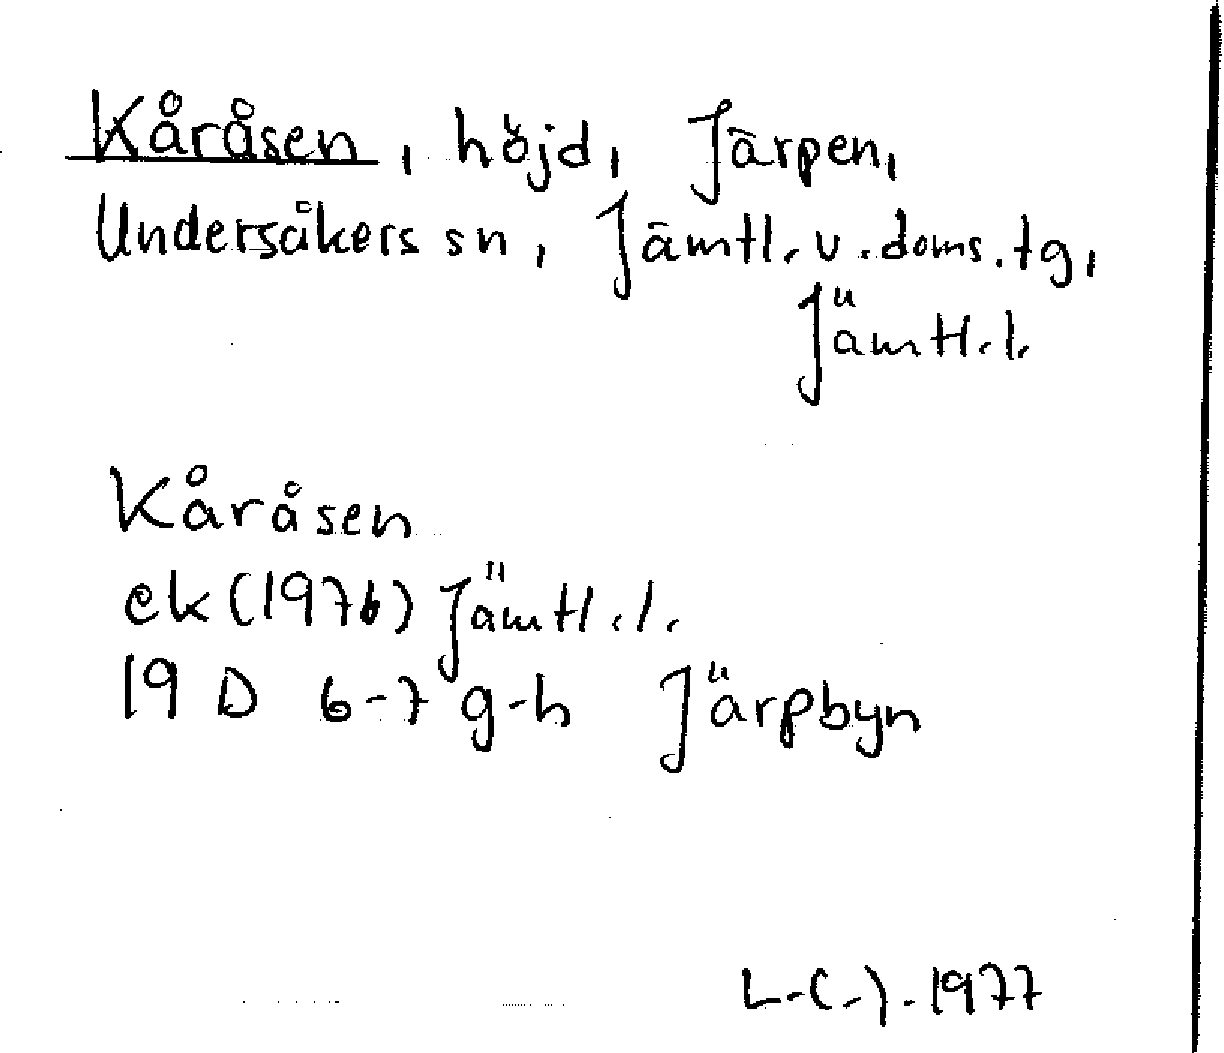 Kåråsen, höjd, Järpen,
Undersåkers sn, Jämtl. v. doms. tg,
Jämtl. l.
Kåråsen
ek (1976) Jämtl. l.
19 D 6-7 g-h Järpbyn
1977